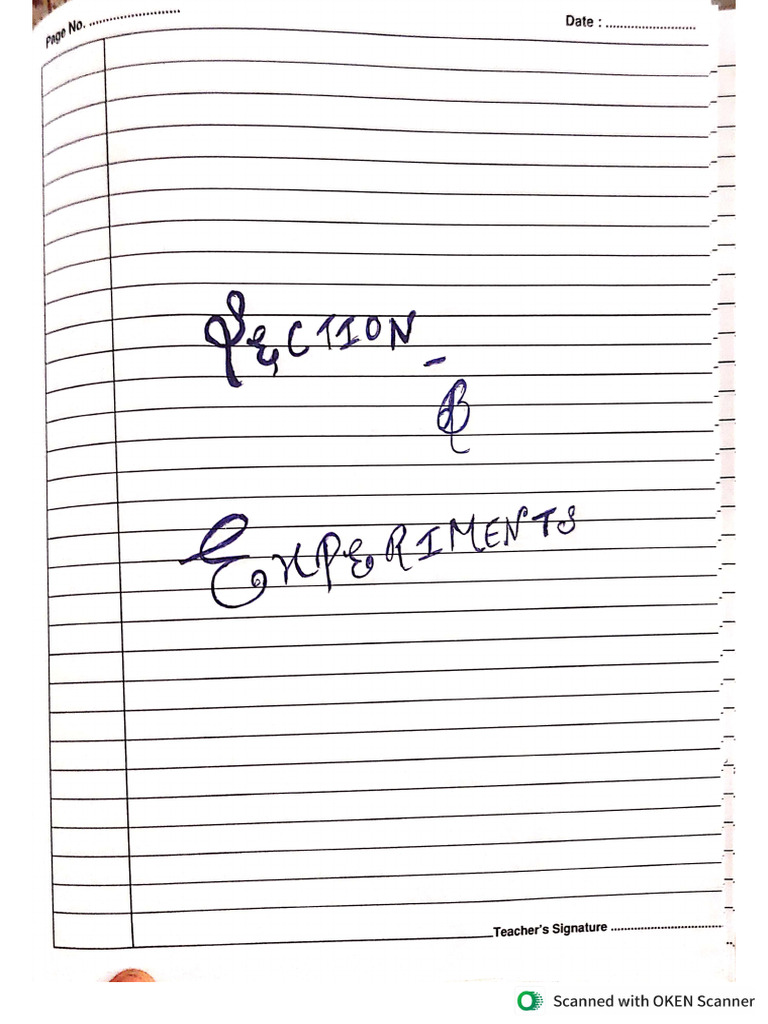 Page No. ........................
Date : ........................
SECTION
- B
EXPERIMENTS
Teacher's Signature ..............................
Scanned with OKEN Scanner